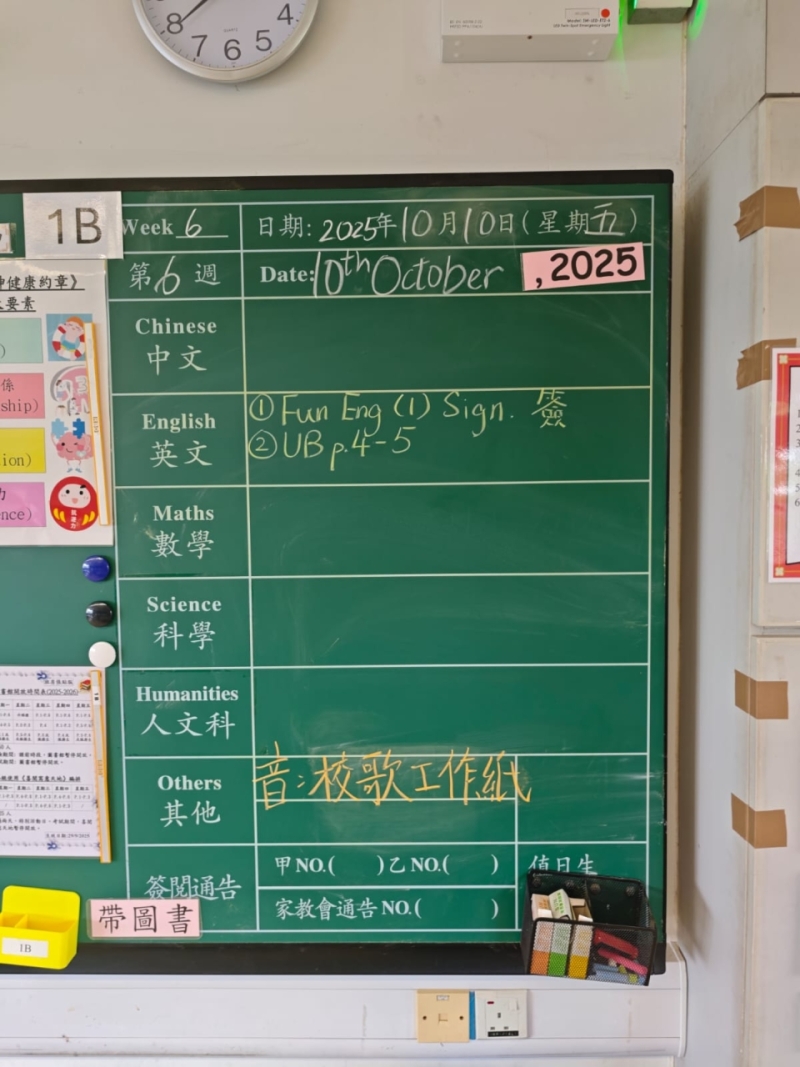 8 7 6 5 4
1B
Week 6
日期: 2025年10月10日(星期五)
第6週
Date: 10th October , 2025
Chinese
中文
English
英文
① Fun Eng (1) Sign. 簽
② UB p.4-5
Maths
數學
Science
科學
Humanities
人文科
Others
其他
音:校歌工作紙
簽閱通告
甲NO.( )乙NO.( )
家教會通告NO.( )
值日生
帶圖書
1B
健康約章》
要素
係
ship)
ion)
力
ence)